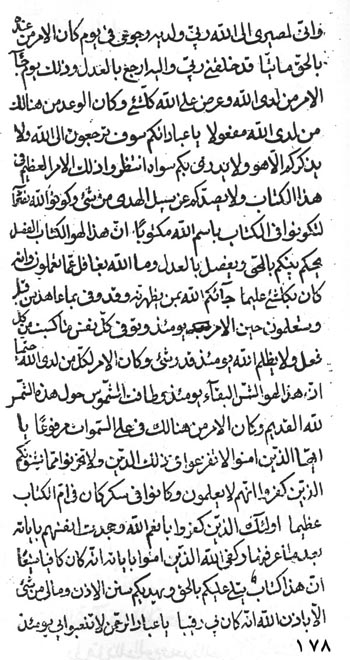 فانّ لمصيرى الى الله ربّى ولديه رجوعى فى يوم كان الامر من عنده
بالحق ماتيّا قد خلقنى ربّى واليه ارجع بالعدل وذلك يوم جآء
الامر من لدى الله وعرض على الله كلّشئ وكان الوعد من هنالك
من لدى الله مفعولا ياعباد انّكم سوف ترجعون الى الله ولا
يذكركم الا هو ولا يدرى بكم سواه انتظروا ذلك الامر العظيم فى
هذا الكتاب ولا يصدّكم عن سبيل الهدى من شئ وكونوا لله نقيّا
لتكونوا فى الكتاب باسم الله مكتوبا انّ هذا لهو الكتاب الفصل
يحكم بينكم بالحق ويفصل بالعدل وما الله بغافل عمّا تعملون وانّه
كان بكلّشئ عليما جآئكم الله بمن يظهرنّه وقد وفى بما عاهد من قبل
وستعلمون حين الامر يومئذ وتوفى كلّ نفس ما كسبت من كل
فعل ولا يظلم الله يومئذ قدر شئ وكان الامر لكل من لدى الله حتما
انّ هذا لهو الشمس البقآء يومئذ وطافت الشموس حول هذه الثمر
لله القديم وكان الامر من هنالك فى على السموات مرفوعا يا
ايها الذين امنوا لا تفزعوا فى ذلك الدين ولا تحزنوا عما
الذين كفروا انّهم لا يعلمون وكانوا فى سكر كان فى ام الكتاب
عظيما اولئك الذين كفروا بانعم الله وجحدت انفسهم باياته
بعد ما عرفوها وكفى الله الذين امنوا باياته انّه كان كافيا
انّ هذا كتاب يتلى عليكم بالحق ويهديكم سنن الاذن ومالى من شئ
الّا باذن الله انّه كان رقيبا ياعباد الرحمن لا يومئذ
١٧٨